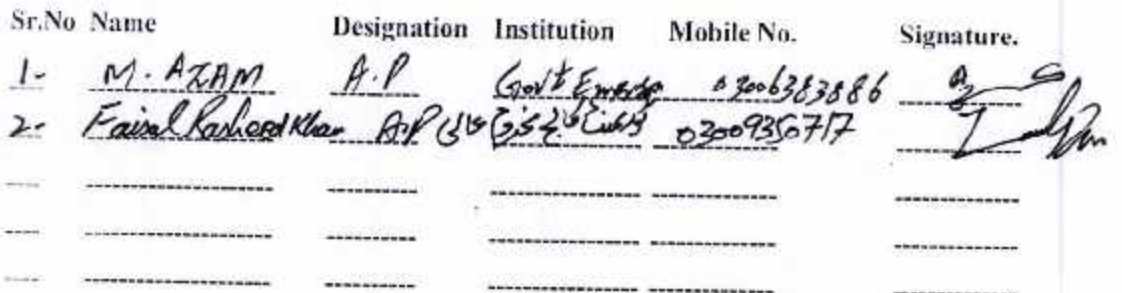 Sr.No Name Designation Institution Mobile No. Signature.
1- M. AZAM A.P Govt Emerson 03006383886
2- Faisal Rasheed Khan A.P 03009350717